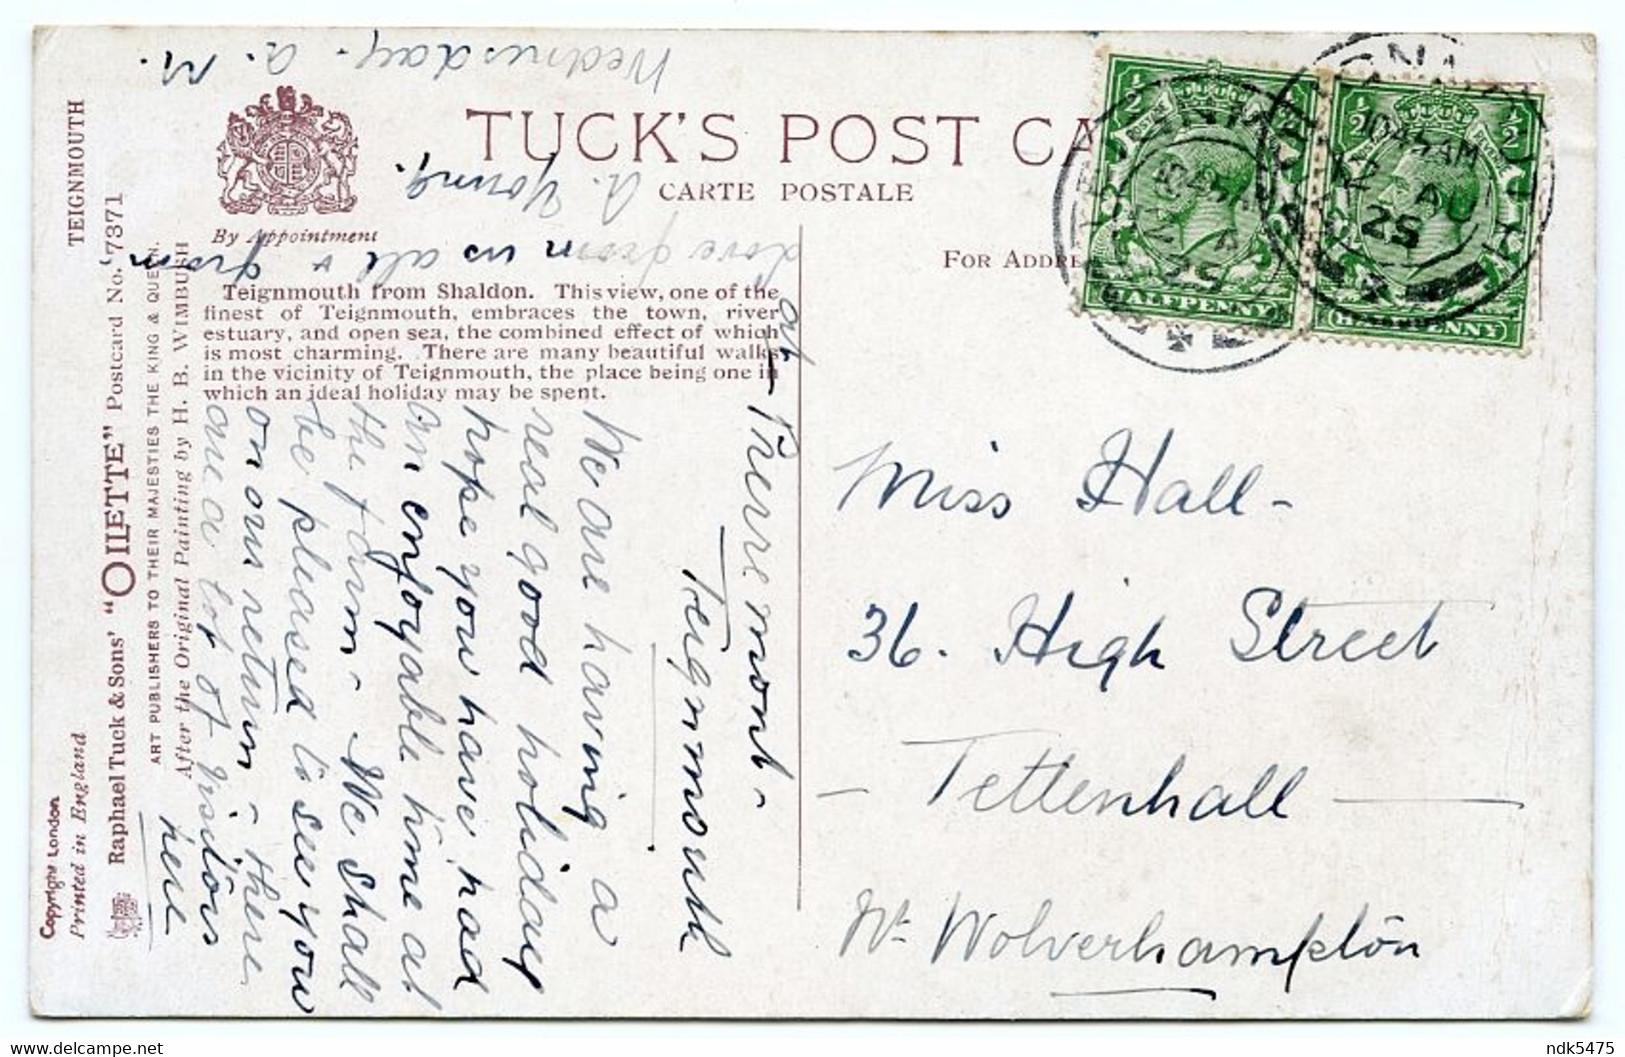 TEIGNMOUTH
Copyright London
Printed in England
Raphael Tuck & Sons' "OILETTE" Postcard No. 7371
ART PUBLISHERS TO THEIR MAJESTIES THE KING & QUEEN.
After the Original Painting by H. B. WIMBUSH
By Appointment
TUCK'S POST CA
CARTE POSTALE
FOR ADDRE
Teignmouth from Shaldon. This view, one of the
finest of Teignmouth, embraces the town, river
estuary, and open sea, the combined effect of which
is most charming. There are many beautiful walks
in the vicinity of Teignmouth, the place being one in
which an ideal holiday may be spent.
at
Teignmouth
We are having a
real good holiday
hope you have had
an enjoyable time at
the farm - We shall
be pleased to see you
on our return - there
are a lot of visitors
here
love from us all & from
A. Young.
Wednesday. a. m.
Miss Hall -
36. High Street
- Tettenhall -
Nr. Wolverhampton
1/2 1/2
HALFPENNY
1/2 1/2
HALFPENNY
1045 AM
12 AU
25
1045 AM
12 AU
25
https://www.delcampe.net
ndk5475